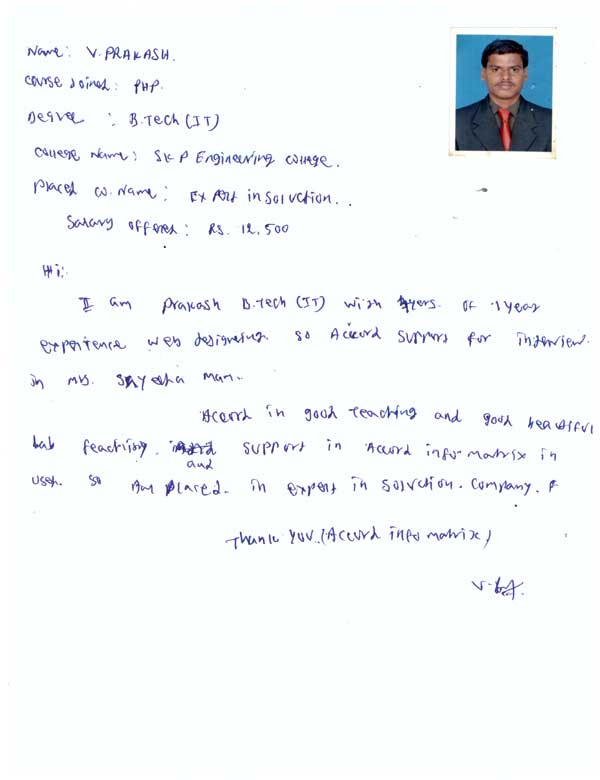 Name: V. PRAKASH.
Course Joined: PHP.
Degree : B.Tech (IT)
College Name: SKP Engineering College.
Placed co. Name: Expert in Solvction..
Salary offered: RS. 12,500
Hi:
I am Prakash B.Tech (IT) with of 1 year
experience web designing. so Accord Support for interview.
in Ms. Mam.
Accord in good teaching and good beautiful
Lab and support in Accord info matrix in
so Am placed. in expert in solvction. company.
Thank YOU. (Accord info matrix)